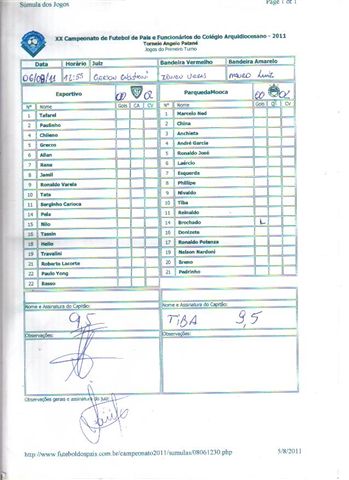 Súmula dos Jogos Page 1 of 1
XX Campeonato de Futebol de Pais e Funcionários do Colégio Arquidiocesano - 2011
Torneio Angelo Palané
Jogos do Primeiro Turno
Data Horário Juiz Bandeira Vermelho Bandeira Amarelo
12:55
Esportivo 00 02 ParquedaMooca 00 02
Nº Nome Gols CA CV Nº Nome Gols CV
1 Tafarel 1 Marcelo Ned
2 Paulinho 2 China
4 Chileno 3 Anchieta
5 Grecco 4 André Garcia
6 Allan 5 Ronaldo José
7 Rana 6 Laércio
8 Jamil 7 Esquerda
9 Ronaldo Varela 8 Phillipe
10 Tata 9 Nivaldo
11 Serginho Carioca 10 Tiba
14 Pela 11 Reinaldo
15 Nilo 14 Brochado L
16 Tassin 16 Donizete
18 Helio 17 Ronaldo Potenza
19 Travalini 19 Nelson Nardoni
21 Roberto Lacorte 20 Breno
22 Paulo Yong 21 Pedrinho
22 Basso
Nome e Assinatura do Capitão: Nome e Assinatura do Capitão:
9,5 TIBA 9,5
Observações: Observações:
Observações gerais e assinatura do juiz:
http://www.futeboldospais.com.br/campeonato2011/sumulas/08061230.php 5/8/2011